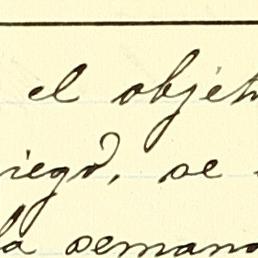 el objeto
riego, se
la semana